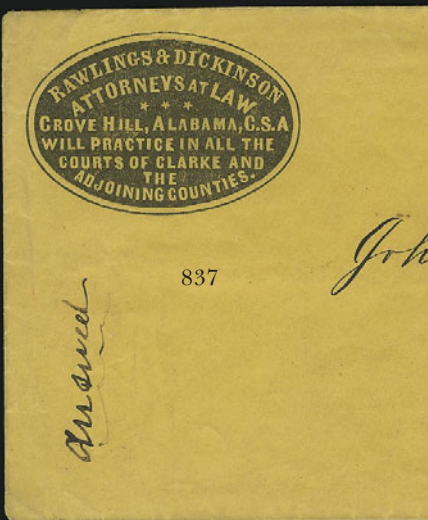 RAWLINGS & DICKINSON
ATTORNEYS AT LAW
GROVE HILL, ALABAMA, C.S.A
WILL PRACTICE IN ALL THE
COURTS OF CLARKE AND
THE
ADJOINING COUNTIES.
Joh
837